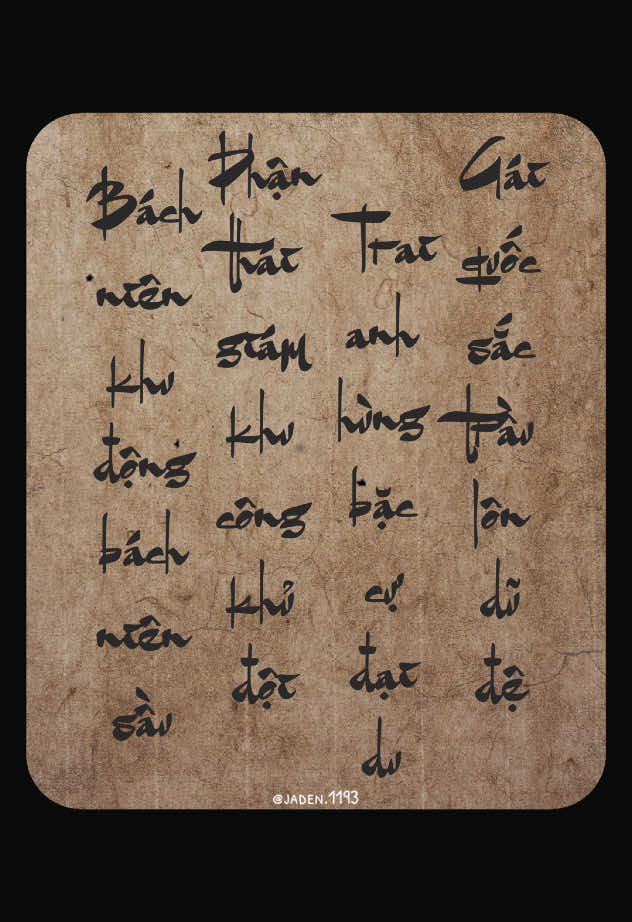 Gái quốc sắc tầu lôn dũ đệ
Trai anh hùng bặc cự đại du
Phận thái giám khu công khủ đột
Bách niên khu động bách niên sầu
@JADEN.1193